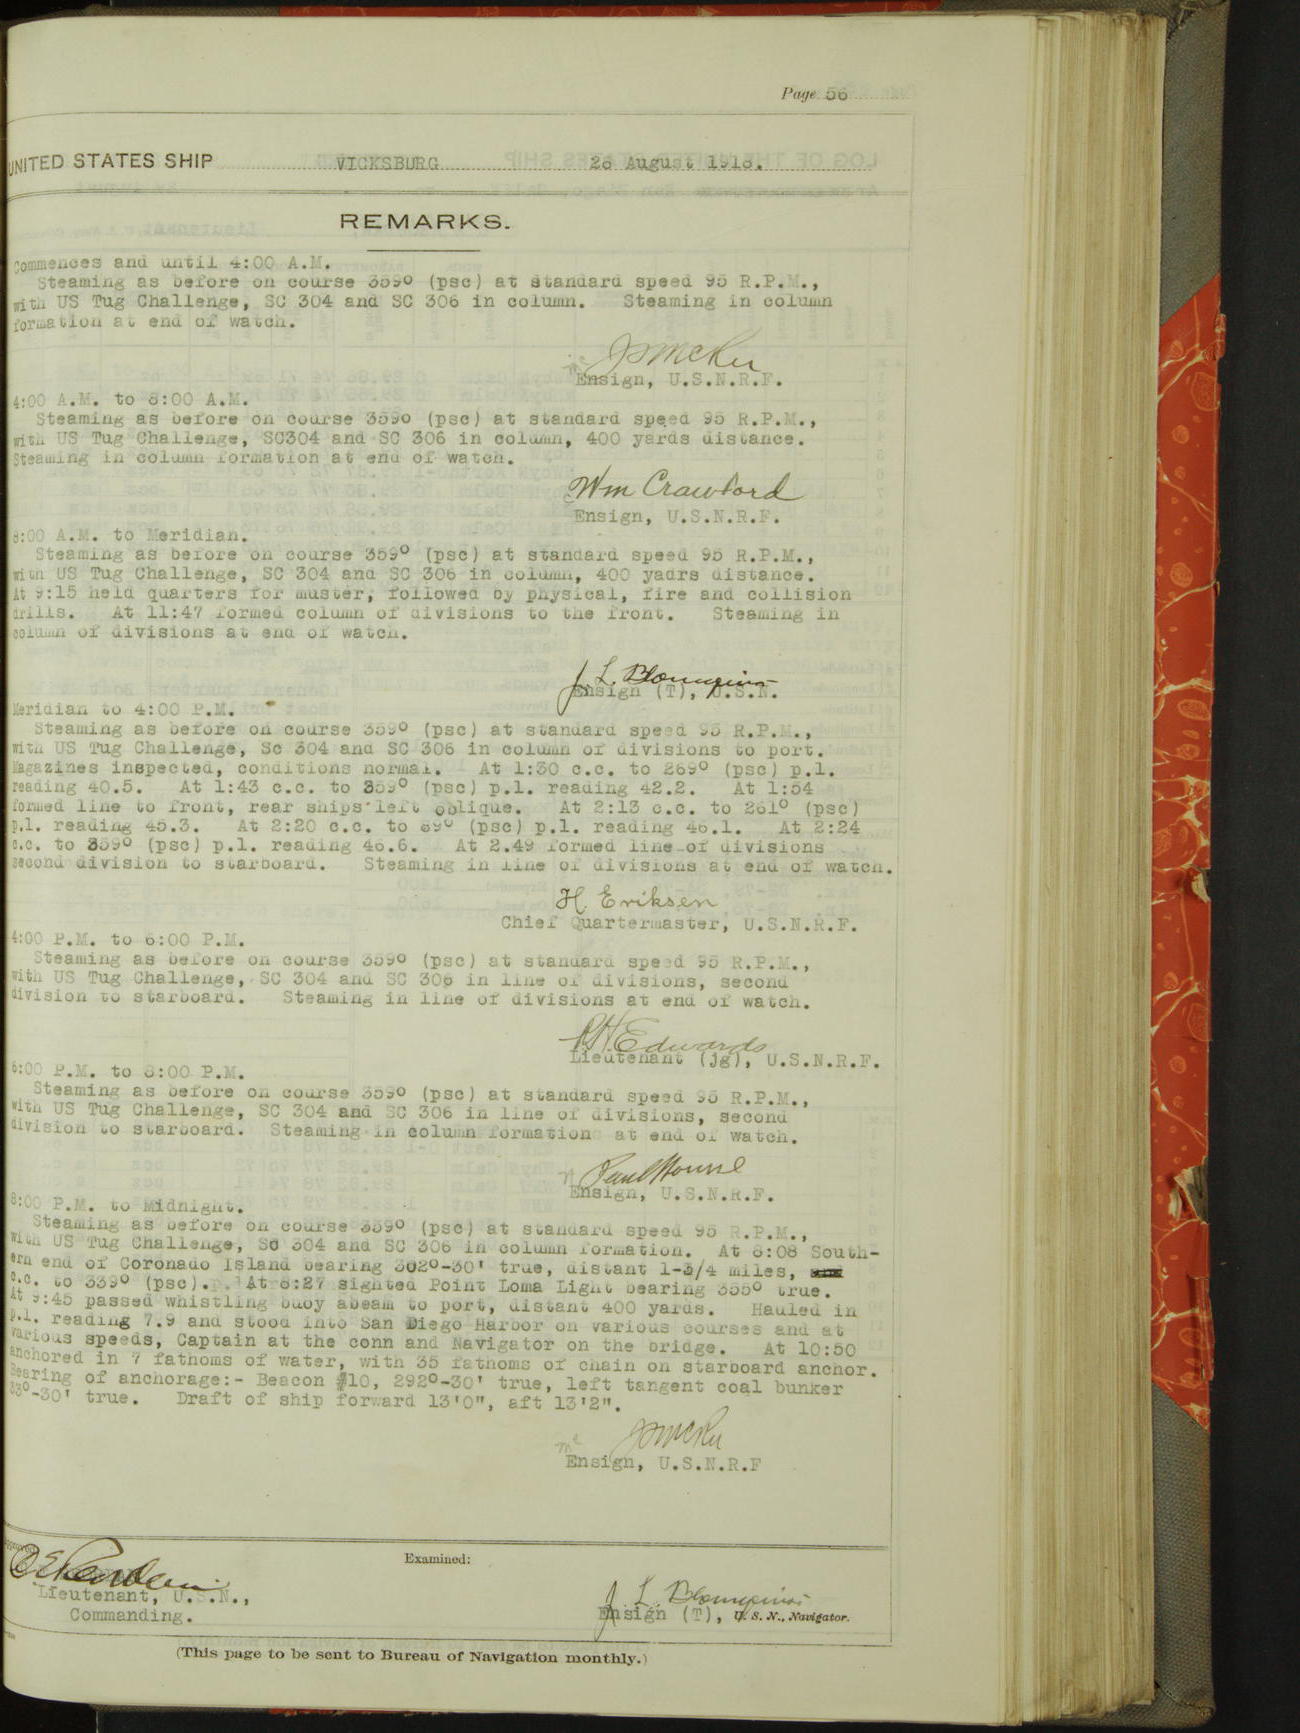 Page 56
UNITED STATES SHIP VICKSBURG 28 August 1918.
REMARKS.
Commences and until 4:00 A.M.
Steaming as before on course 359° (psc) at standard speed 95 R.P.M.,
with US Tug Challenge, SC 304 and SC 306 in column. Steaming in column
formation at end of watch.
Ensign, U.S.N.R.F.
4:00 A.M. to 8:00 A.M.
Steaming as before on course 359o (psc) at standard speed 95 R.P.M.,
with US Tug Challenge, SC304 and SC 306 in column, 400 yards distance.
Steaming in column formation at end of watch.
Wm Crawford
Ensign, U.S.N.R.F.
8:00 A.M. to Meridian.
Steaming as before on course 359° (psc) at standard speed 95 R.P.M.,
with US Tug Challenge, SC 304 and SC 306 in column, 400 yadrs distance.
At 9:15 held quarters for muster, followed by physical, fire and collision
drills. At 11:47 formed column of divisions to the front. Steaming in
column of divisions at end of watch.
J. L.
Ensign (T), U.S.N.
Meridian to 4:00 P.M.
Steaming as before on course 359° (psc) at standard speed 95 R.P.M.,
with US Tug Challenge, Sc 304 and SC 306 in column of divisions to port.
Magazines inspected, conditions normal. At 1:30 c.c. to 269° (psc) p.l.
reading 40.5. At 1:43 c.c. to 359° (psc) p.l. reading 42.2. At 1:54
formed line to front, rear ships left oblique. At 2:13 c.c. to 261° (psc)
p.l. reading 45.3. At 2:20 c.c. to 89° (psc) p.l. reading 46.1. At 2:24
c.c. to 359° (psc) p.l. reading 46.6. At 2.49 formed line of divisions
second division to starboard. Steaming in line of divisions at end of watch.
H. Eriksen
Chief Quartermaster, U.S.N.R.F.
4:00 P.M. to 6:00 P.M.
Steaming as before on course 359° (psc) at standard speed 95 R.P.M.,
with US Tug Challenge, SC 304 and SC 306 in line of divisions, second
division to starboard. Steaming in line of divisions at end of watch.
P.H. Edwards
Lieutenant (jg), U.S.N.R.F.
6:00 P.M. to 8:00 P.M.
Steaming as before on course 359° (psc) at standard speed 95 R.P.M.,
with US Tug Challenge, SC 304 and SC 306 in line of divisions, second
division to starboard. Steaming in column formation at end of watch.
Ensign, U.S.N.R.F.
8:00 P.M. to Midnight.
Steaming as before on course 359° (psc) at standard speed 95 R.P.M.,
with US Tug Challenge, SC 304 and SC 306 in column formation. At 8:08 South-
ern end of Coronado Island bearing 302°-30' true, distant 1-3/4 miles,
c.c. to 339° (psc). At 8:27 sighted Point Loma Light bearing 355° true.
At 9:45 passed whistling buoy abeam to port, distant 400 yards. Hauled in
p.l. reading 7.9 and stood into San Diego Harbor on various courses and at
various speeds, Captain at the conn and Navigator on the bridge. At 10:50
anchored in 7 fathoms of water, with 35 fathoms of chain on starboard anchor.
Bearing of anchorage:- Beacon #10, 292°-30' true, left tangent coal bunker
33°-30' true. Draft of ship forward 13'0", aft 13'2".
Ensign, U.S.N.R.F
Examined:
Lieutenant, U.S.N.,
Commanding.
J. L.
Ensign (T), U. S. N., Navigator.
(This page to be sent to Bureau of Navigation monthly.)